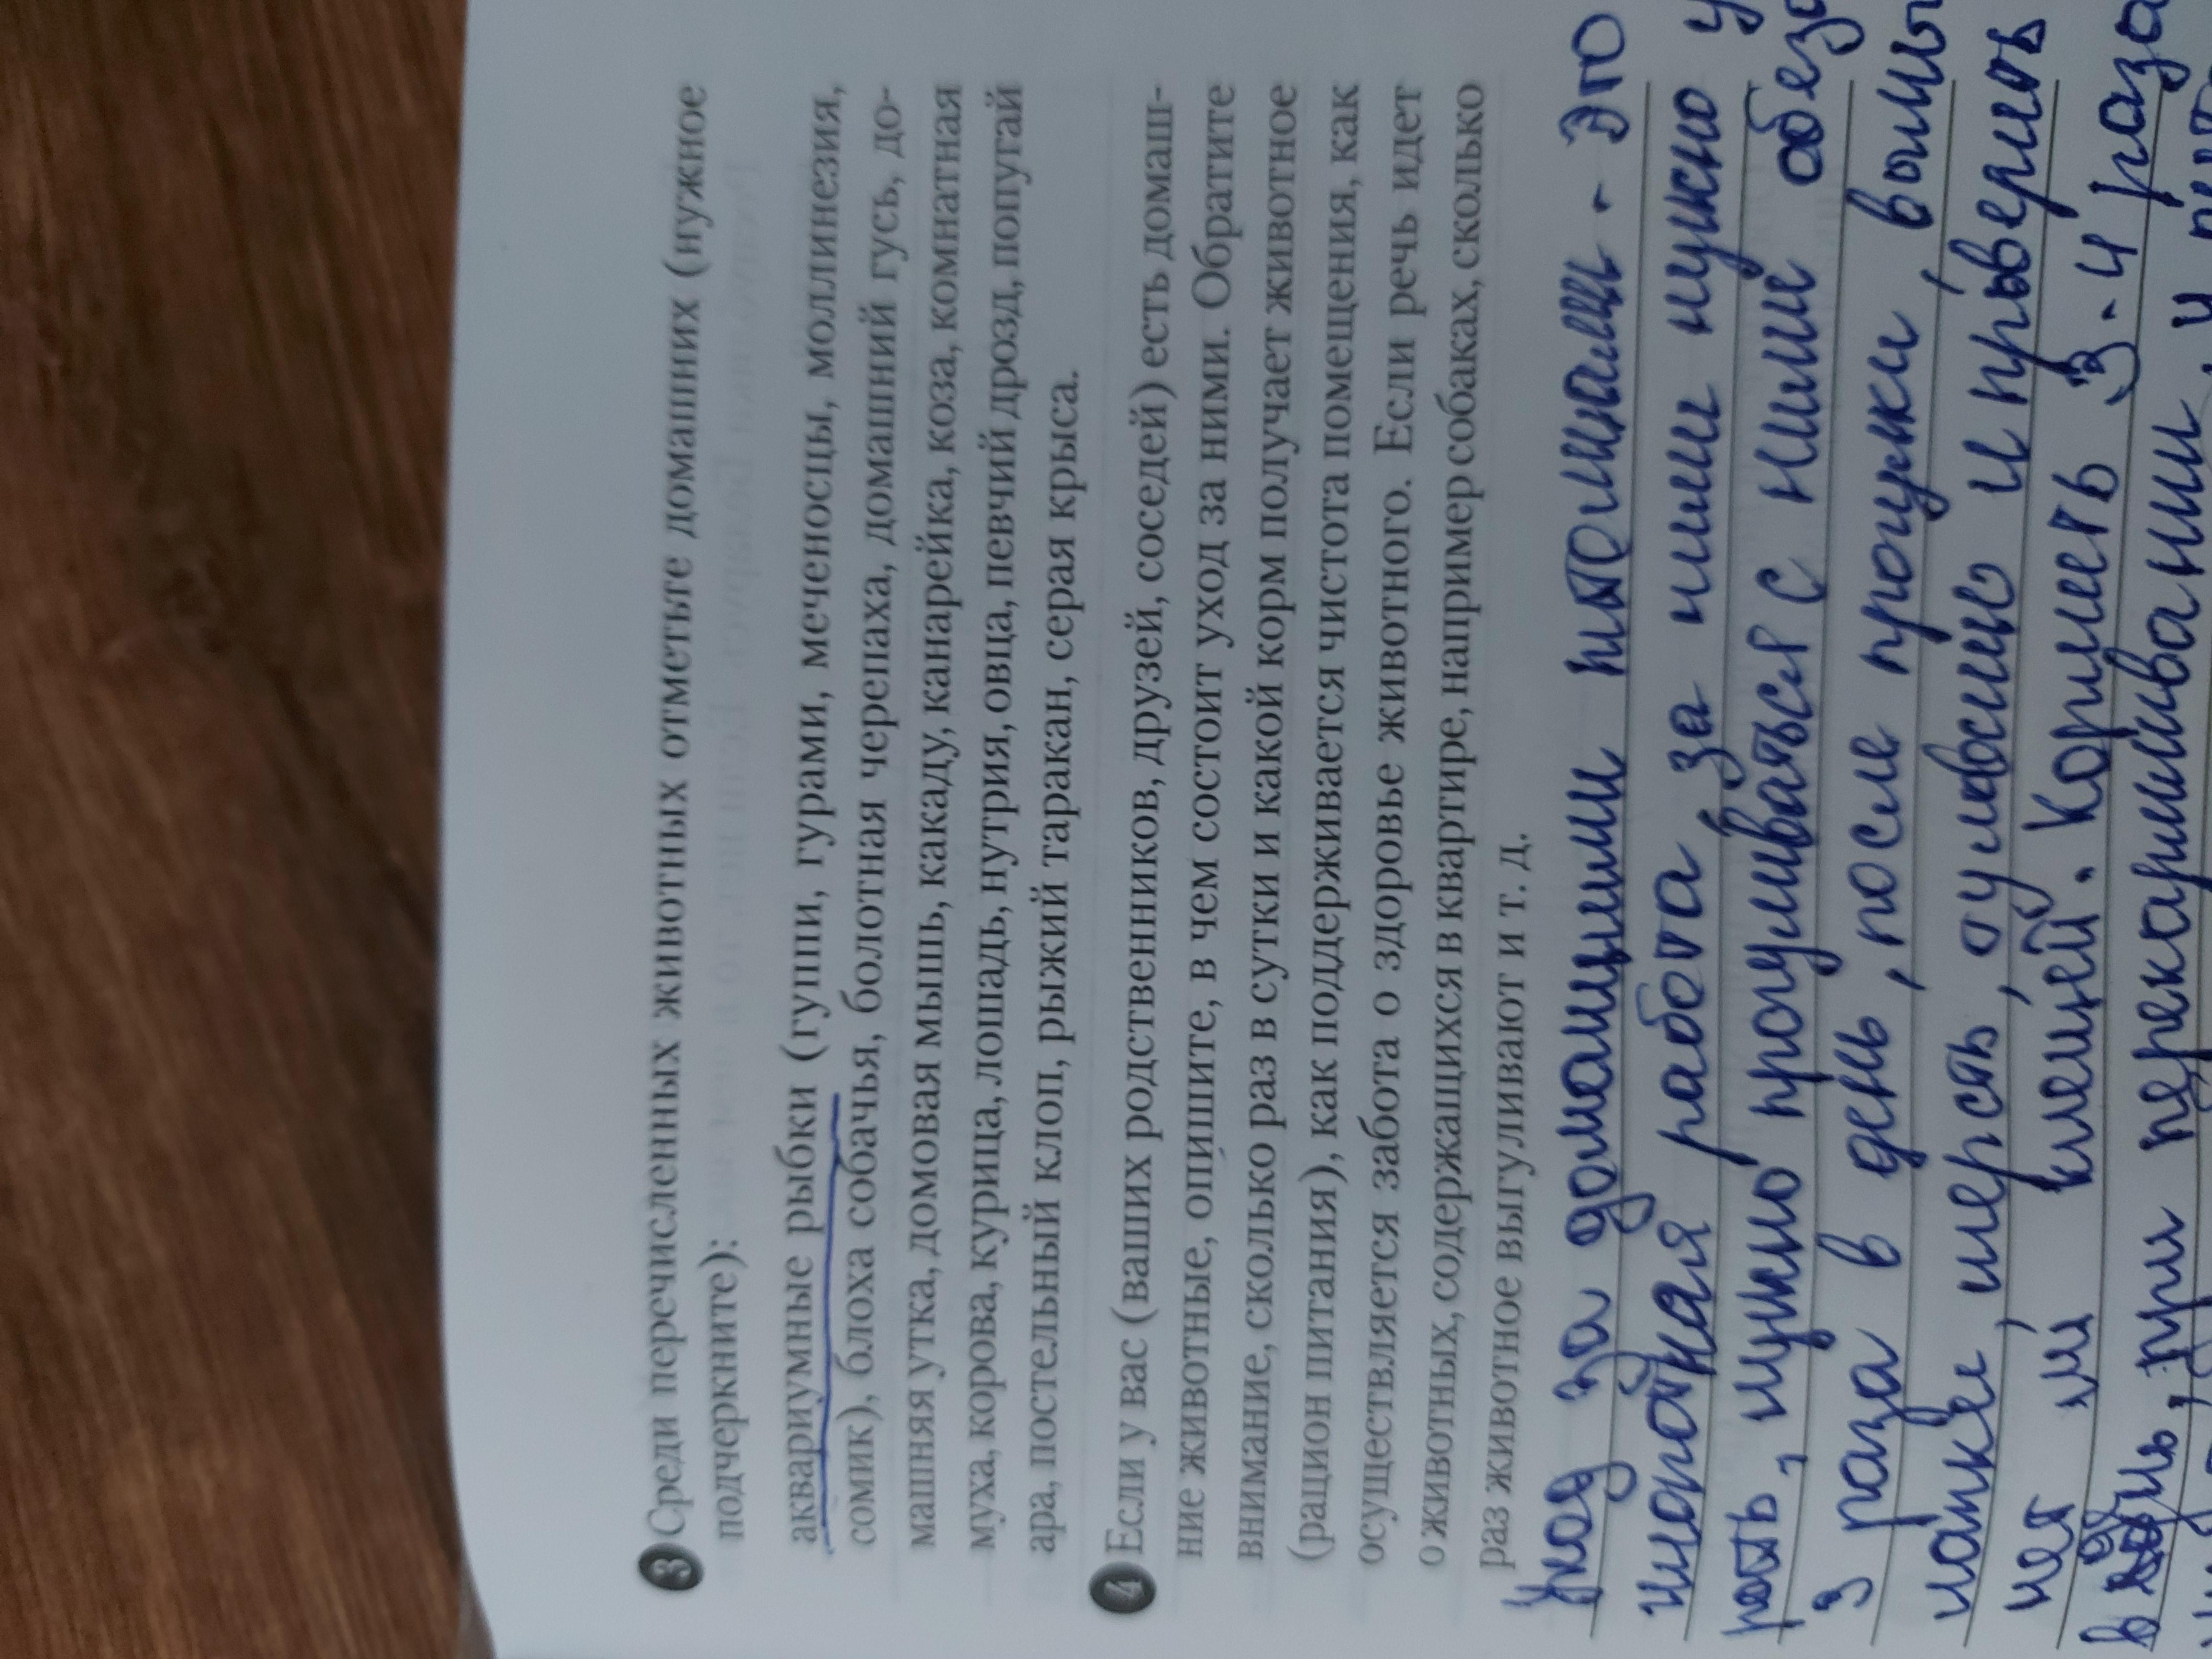 3 Среди перечисленных животных отметьте домашних (нужное
подчеркните):
аквариумные рыбки (гуппи, гурами, меченосцы, моллинезия,
сомик), блоха собачья, болотная черепаха, домашний гусь, до-
машняя утка, домовая мышь, какаду, канарейка, коза, комнатная
муха, корова, курица, лошадь, нутрия, овца, певчий дрозд, попугай
ара, постельный клоп, рыжий таракан, серая крыса.
4 Если у вас (ваших родственников, друзей, соседей) есть домаш-
ние животные, опишите, в чем состоит уход за ними. Обратите
внимание, сколько раз в сутки и какой корм получает животное
(рацион питания), как поддерживается чистота помещения, как
осуществляется забота о здоровье животного. Если речь идет
о животных, содержащихся в квартире, например собаках, сколько
раз животное выгуливают и т. д.
Уход за домашними питомцами - это
работа, за ними нужно
нужно прогуливаться с ними
3 раза в день, после прогулки,
шерсть, и
нет ли клещей. Кормить 3-4 раза
в день, при перекармливании